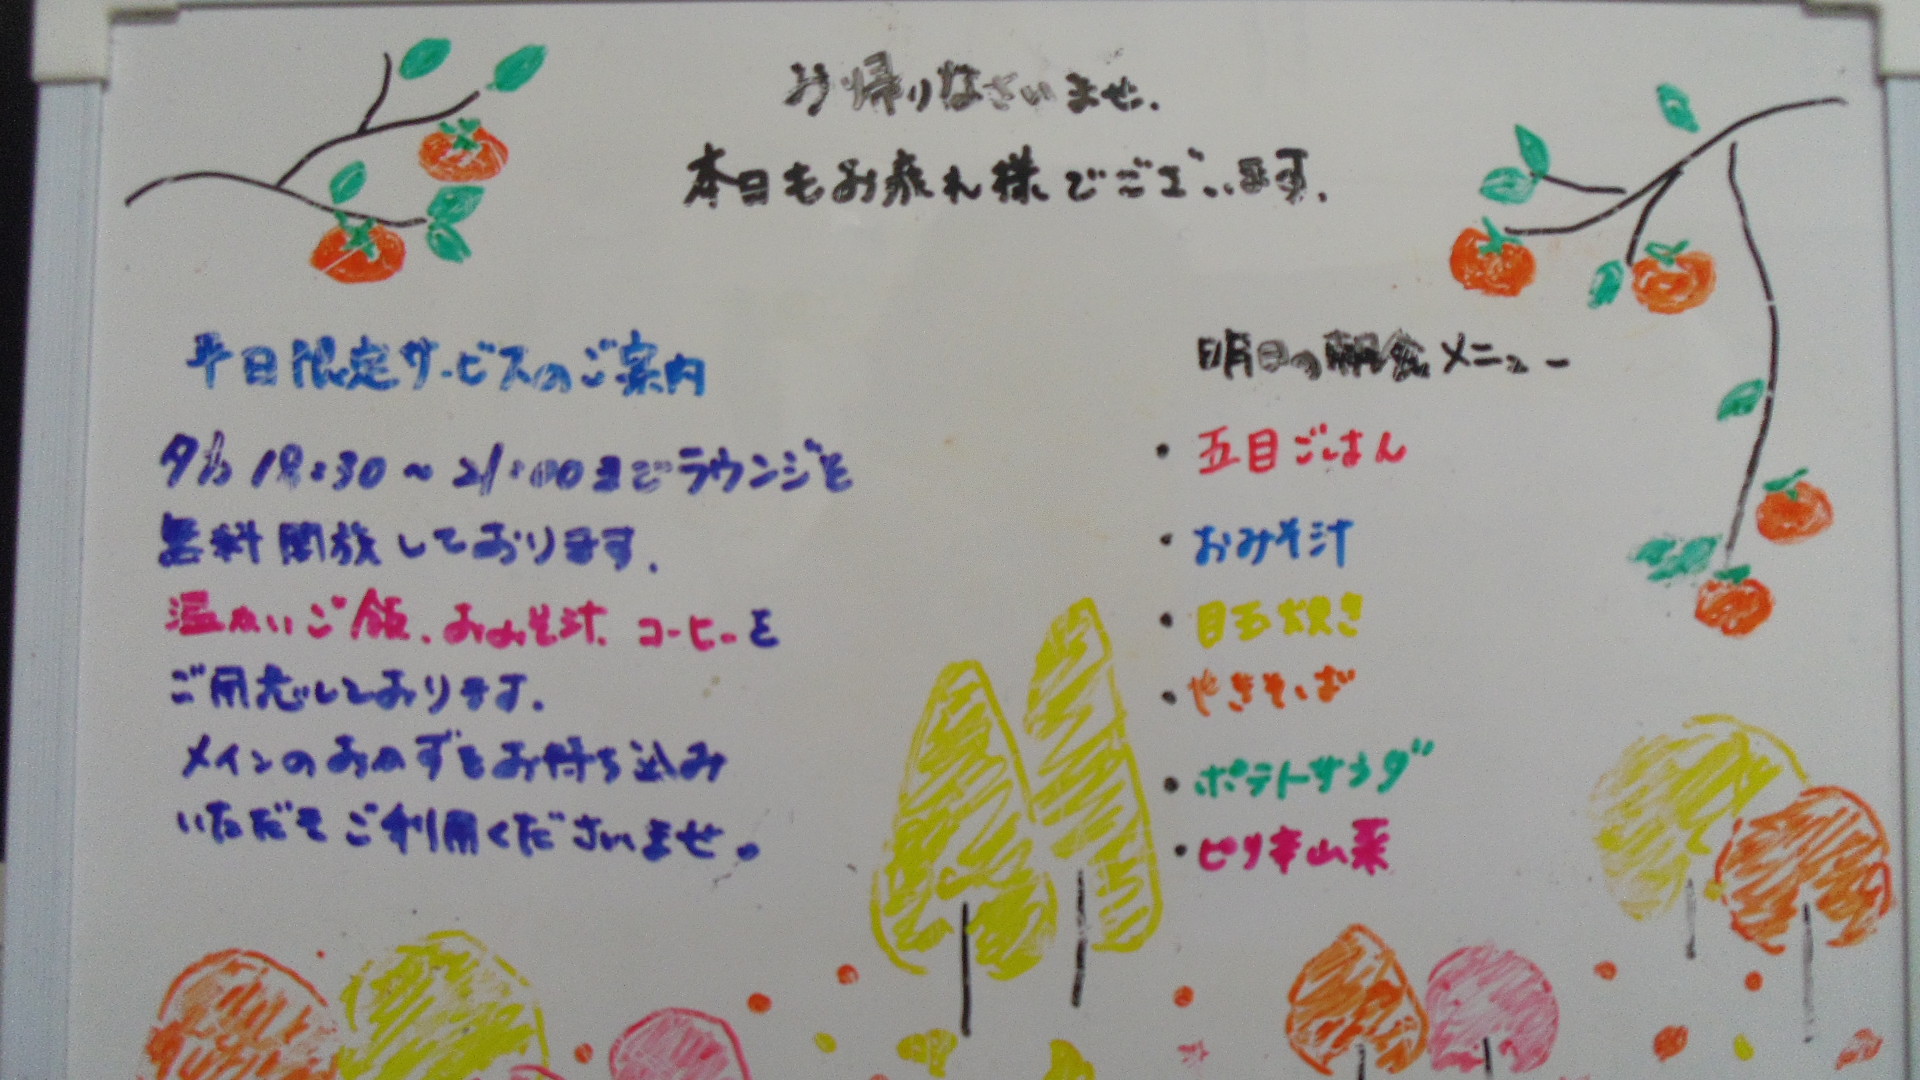 お帰りなさいませ.
本日もお疲れ様でございます.
平日限定サービスのご案内
夕方 18:30〜21:00までラウンジを
無料開放しております.
温かいご飯、おみそ汁、コーヒーを
ご用意しております.
メインのおかずをお持ち込み
いただきご利用くださいませ。
明日の朝食メニュー
・五目ごはん
・おみそ汁
・目玉焼き
・やきそば
・ポテトサラダ
・ピリ辛山菜